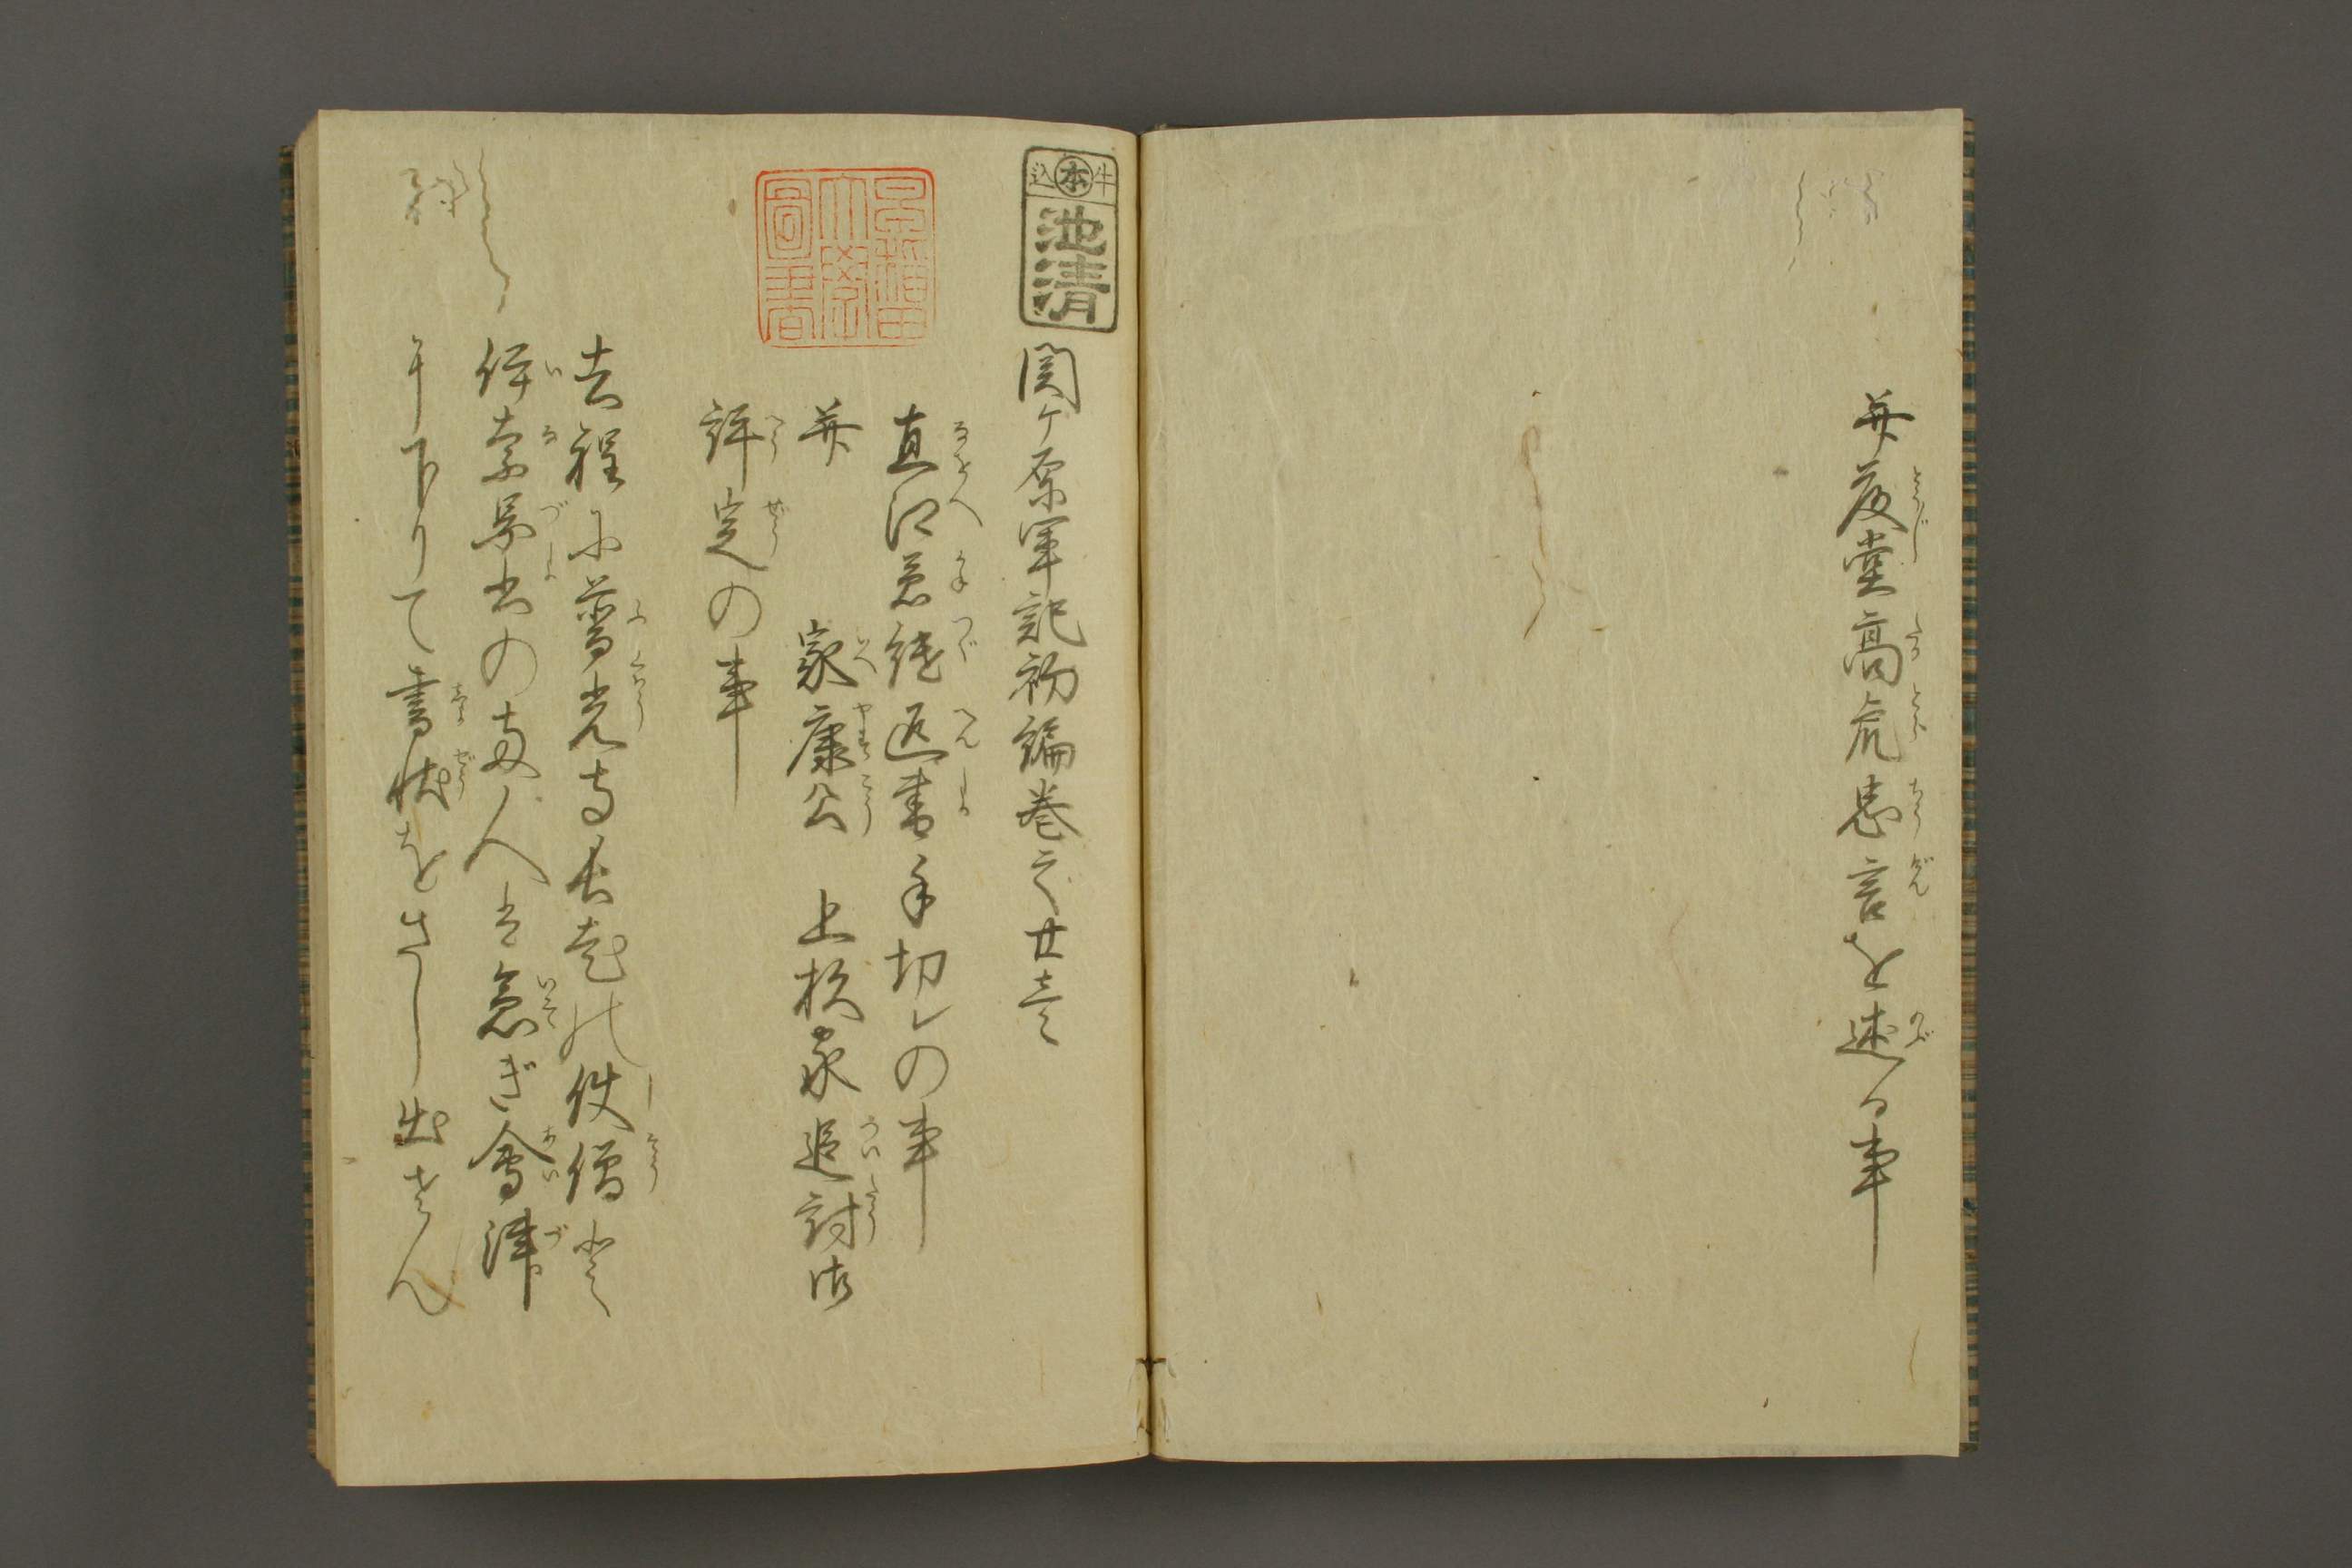 并藤堂高虎忠言を述る事
牛本込
池清
関ヶ原軍記初編巻之廿壱
直江兼続返書手切レの事
并 家康公 上杉家追討御
評定の事
去程に豊光寺長老の使僧と
伊奈昼出の両人は急ぎ會津
下りて書状をさし出せん